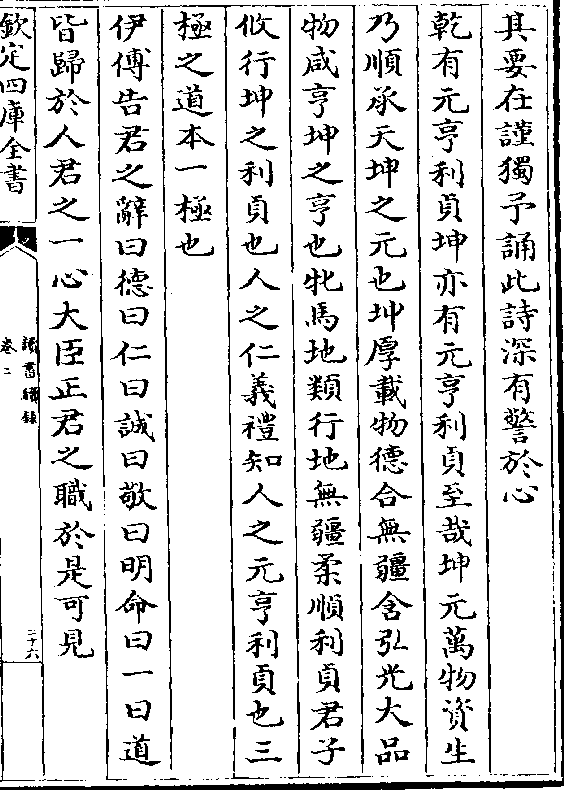 其要在謹獨予誦此詩深有警於心
乾有元亨利貞坤亦有元亨利貞至哉坤元萬物資生
乃順承天坤之元也坤厚載物德合無疆含弘光大品
物咸亨坤之亨也牝馬地類行地無疆柔順利貞君子
攸行坤之利貞也人之仁義禮知人之元亨利貞也三
極之道本一極也
伊傅告君之辭曰德曰仁曰誠曰敬曰明命曰一曰道
皆歸於人君之一心大臣正君之職於是可見
欽定四庫全書
讀書續錄
卷二
三十六